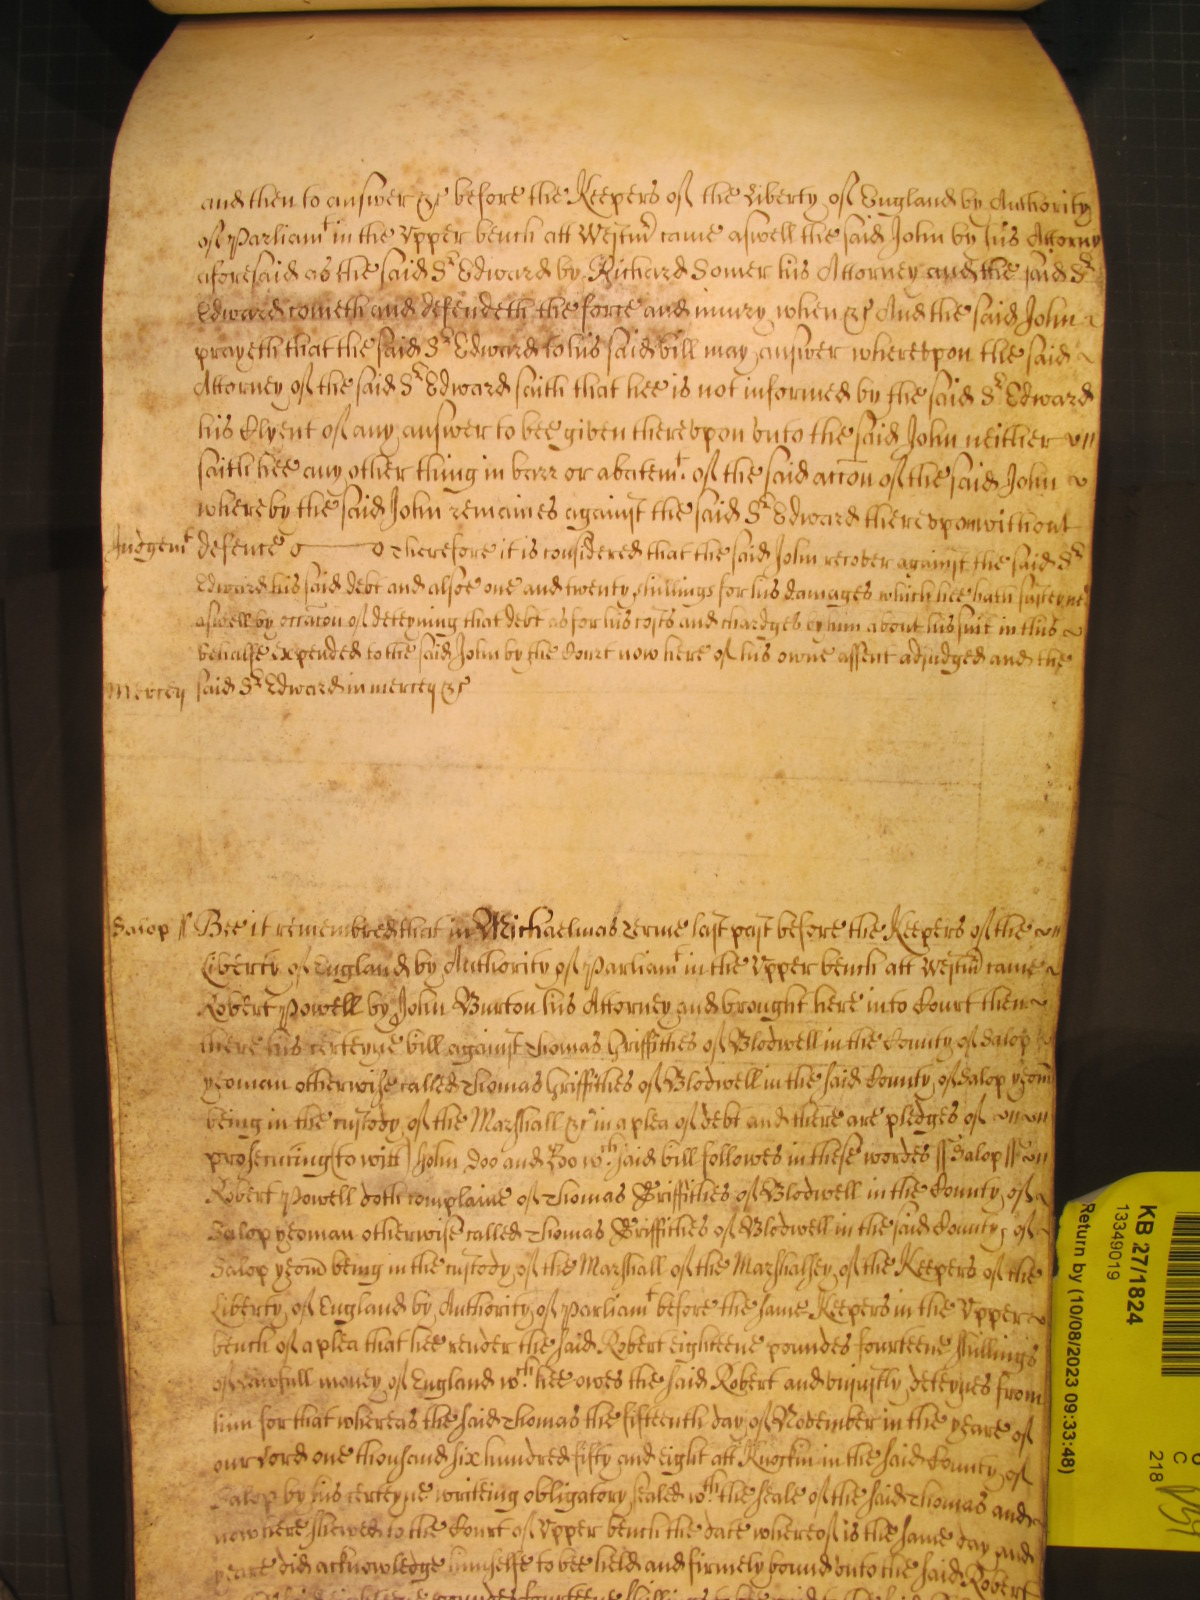 and then to answer &c before the Keepers of the Liberty of England by Authority
of Parliamt in the Upper bench att Westm came aswell the said John by his Attorny
aforesaid as the said Sr Edward by Richard Somer his Attorney and the said Sr
Edward cometh and defendeth the force and iniury when &c And the said John
prayeth that the said Sr Edward to his said bill may answer whereupon the said
Attorney of the said Sr Edward saith that hee is not informed by the said Sr Edward
his Clyent of any answer to bee given thereupon unto the said John neither
saith hee any other thing in barr or abatemt of the said accon of the said John
whereby the said John remaines against the said Sr Edward thereupon without
Judgemt defence Therefore it is considered that the said John recover against the said Sr
Edward his said debt and alsoe one and twenty shillings for his damages which hee hath susteyned
aswell by occacon of deteyning that debt as for his costs and chardges by him about his suit in this
behalfe expended to the said John by the Court now here of his owne assent adjudged and the
Mercey said Sr Edward in mercey &c
Salop ss Bee it remembred that in Michaelmas Terme last past before the Keepers of the
Liberty of England by Authority of Parliamt in the Upper bench att Westm came
Robert Powell by John Burton his Attorney and brought here into Court then
there his certeyne bill against Thomas Griffithes of Blodwell in the County of Salop
yeoman otherwise called Thomas Griffithes of Blodwell in the said County of Salop yeom
being in the custody of the Marshall &c in a plea of debt and there are pledges of
prosecuting (to witt) John Doo and Roo wch said bill followes in these wordes ss Salop ss
Robert Powell doth complaine of Thomas Griffithes of Blodwell in the County of
Salop yeoman otherwise called Thomas Griffithes of Blodwell in the said County of
Salop yeom being in the custody of the Marshall of the Marshalsey of the Keepers of the
Liberty of England by Authority of Parliamt before the same Keepers in the Upper
bench of a plea that hee render the said Robert eighteene poundes fourteene shillings
of lawfull money of England wch hee owes the said Robert and uniustly deteynes from
him for that whereas the said Thomas the fifteenth day of November in the yeare of
our Lord one thousand six hundred fifty and eight att Knockin in the said County of
Salop by his certeyne writeing obligatory sealed wth the seale of the said Thomas and
now here shewed to the Court of Upper bench the date whereof is the same day and
yeare did acknowledge himselfe to bee held and firmely bound unto the said Robert
KB 27/1824
13349019
Return by (10/08/2023 09:33:48)
C
218